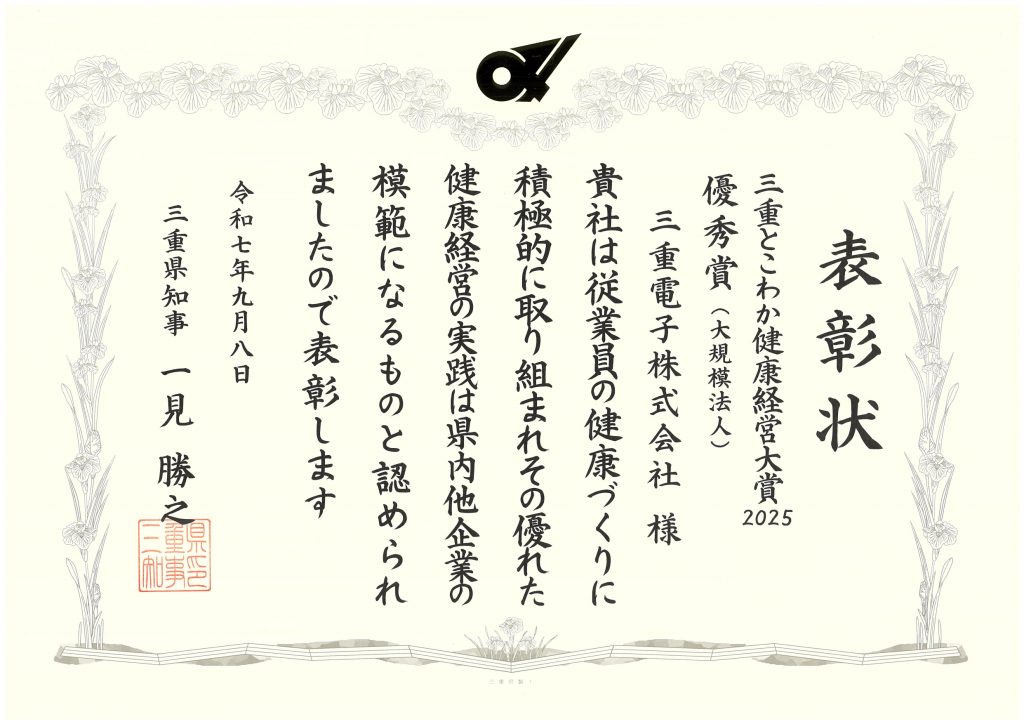 表彰状
三重とこわか健康経営大賞2025
優秀賞（大規模法人）
三重電子株式会社 様
貴社は従業員の健康づくりに
積極的に取り組まれその優れた
健康経営の実践は県内他企業の
模範になるものと認められ
ましたので表彰します
令和七年九月八日
三重県知事 一見 勝之